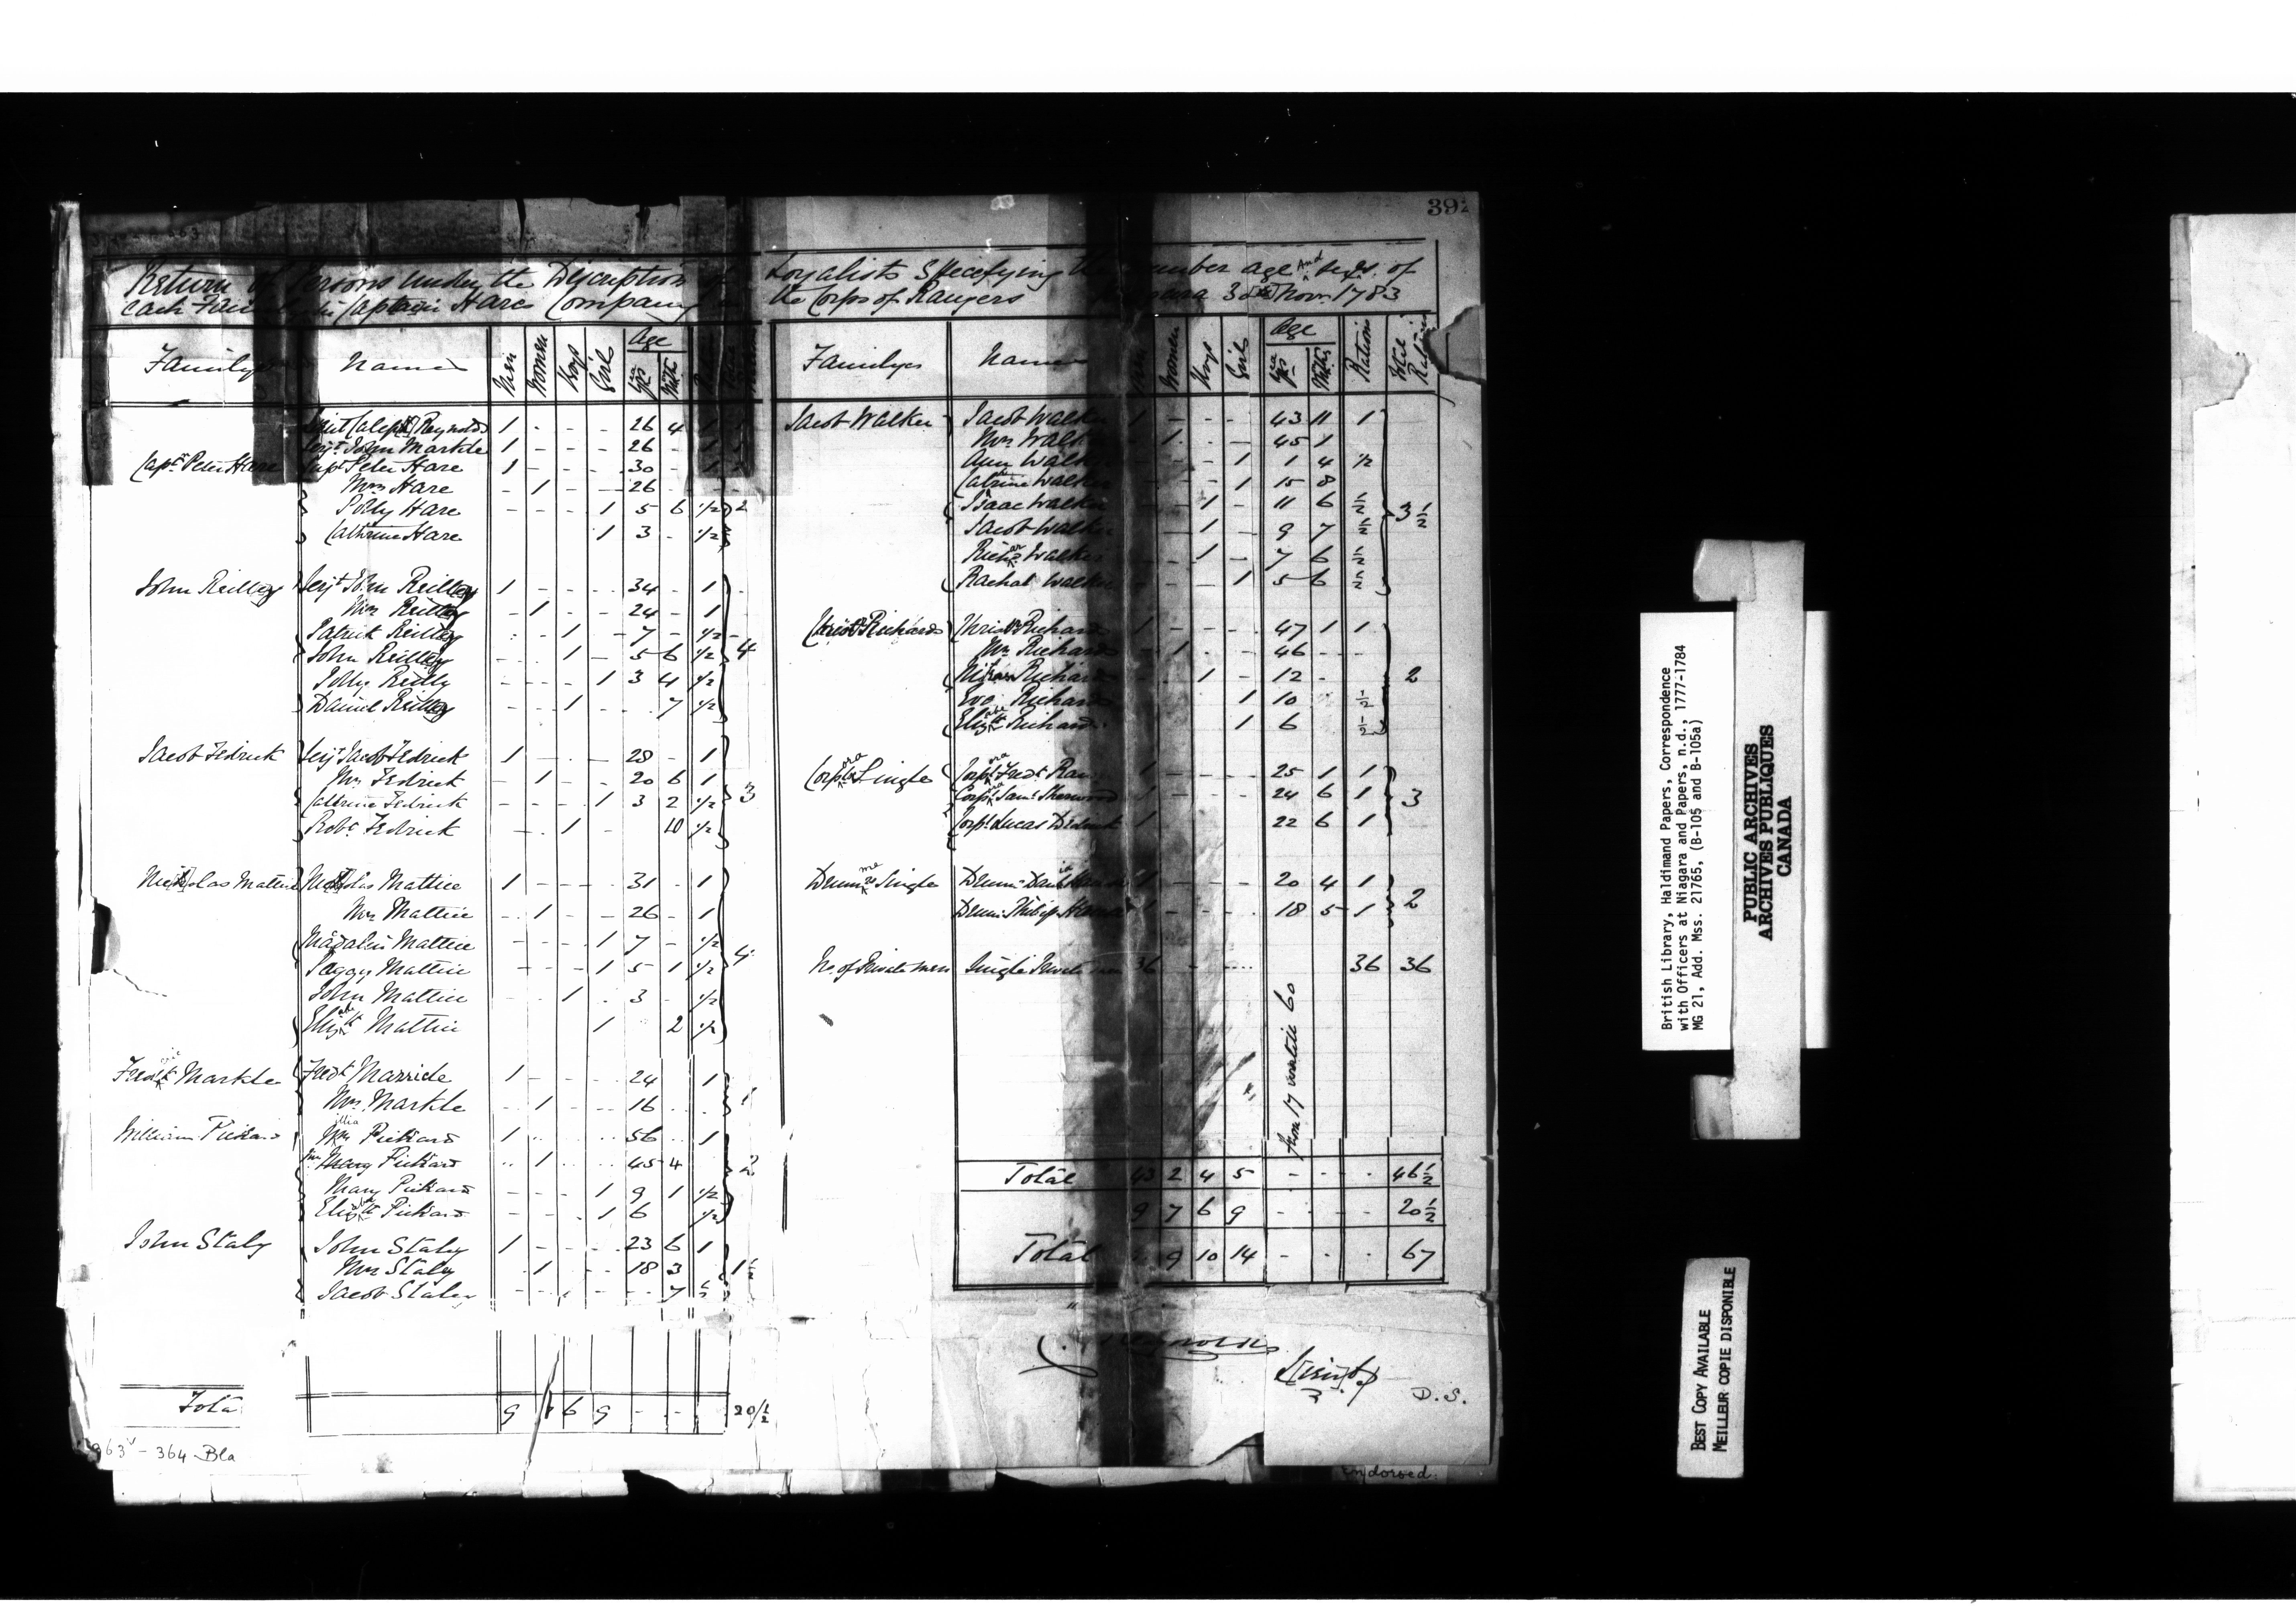 39½
Return of Persons Under the Discription of Loyalists Specefying the number age and sexes of
each Family in Captain Hares Company the Corps of Rangers 30th Novr 1783
Familys Names Men Women Boys Girls Age Yrs Mths
Lieut Caleb Reynolds 1 - - - 26 4 1
Serjt John Markle 1 - - - 26 - 1
Capt Peter Hare Capt Peter Hare 1 - - - 30 - 1
Mrs Hare - 1 - - 26
Polly Hare - - - 1 5 6 1/2 2
Cathrine Hare 1 3 - 1/2
John Reilley Serjt John Reilley 1 - - - 34 - 1
Mrs Reilley - 1 - - 24 - 1
Patrick Reilley - - 1 - 7 - 1/2
John Reilley - - 1 - 5 6 1/2 4
Polly Reilly - - - 1 3 4 1/2
Daniel Reilley - - 1 - 7 1/2
Jacob Fedrick Serjt Jacob Fedrick 1 - - - 28 - 1
Mrs Fedrick - 1 - - 20 6 1
Cathrine Fedrick - - - 1 3 2 1/2 3
Robt Fedrick - - 1 - 10 1/2
Nicholas Mattice Nicholas Mattice 1 - - - 31 - 1
Mrs Mattice - 1 - - 26 - 1
Madalin Mattice - - - 1 7 - 1/2
Peggy Mattice - - - 1 5 1 1/2 4
John Mattice - - 1 - 3 - 1/2
Elizabth Mattice 1 2 1/2
Fredk Markle Fredk Markle 1 - - - 24 1
Mrs Markle - 1 - - 16 - 1
William Pickard Wm Pickard 1 - - - 56 - 1
Mrs Mary Pickard - 1 - - 45 4 2
Mary Pickard - - - 1 9 1 1/2
Elizbth Pickard - - - 1 6 1/2
John Staly John Staly 1 - - - 23 6 1
Mrs Staly - 1 - - 18 3 1½
Jacob Staly - - - - 7 ½
Total 9 6 9 - - 20½
363v - 364 - Bla
Familys Names Women Boys Girls Age Yrs Mths Rations Total Rations
Jacob Walker Jacob Walker 1 - - - 43 11 1
Mrs Walker - 1 - - 45 1
Ann Walker - - - 1 1 4 1/2
Catrine Walker - - - 1 15 8
Isaac Walker - - 1 - 11 6 ½ 3½
Jacob Walker - - 1 - 9 7 ½
Richar Walker - - 1 - 7 6 ½
Rachal Walker - - - 1 5 6 ½
Christr Richards Christr Richards 1 - - - 47 1 1
Mrs Richards - 1 - - 46 - -
Richards - - 1 - 12 - 2
Eve Richards 1 10 ½
Elizabth Richards 1 6 ½
Corpora Single Corpl Fredk Rau 1 - - - 25 1 1
Corpl Saml Sherwood 1 - - - 24 6 1 3
Corpl Lucas Dedrick 1 22 6 1
Drumrs Single Drumr David 1 - - - 20 4 1
Drumr Philip 1 - - - 18 5 1 2
No. of Private men Single Private men 36 - - - 36 36
from 17 untill 60
Total 43 2 4 5 - - - 46½
9 7 6 9 - - - 20½
Total 9 10 14 - - - 67
Reynolds
Lieut
D. S.
Endorsed.
British Library, Haldimand Papers, Correspondence
with Officers at Niagara and Papers, n.d., 1777-1784
MG 21, Add. Mss. 21765, (B-105 and B-105a)
PUBLIC ARCHIVES
ARCHIVES PUBLIQUES
CANADA
BEST COPY AVAILABLE
MEILLEUR COPIE DISPONIBLE